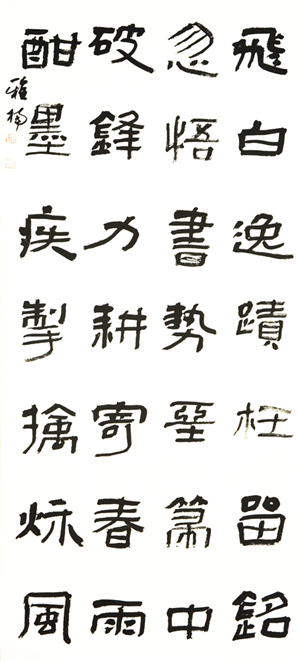 飛白逸蹟枉留銘
忽悟書勢堊箒中
破鋒力耕寄春雨
酣墨疾掣擒秌風